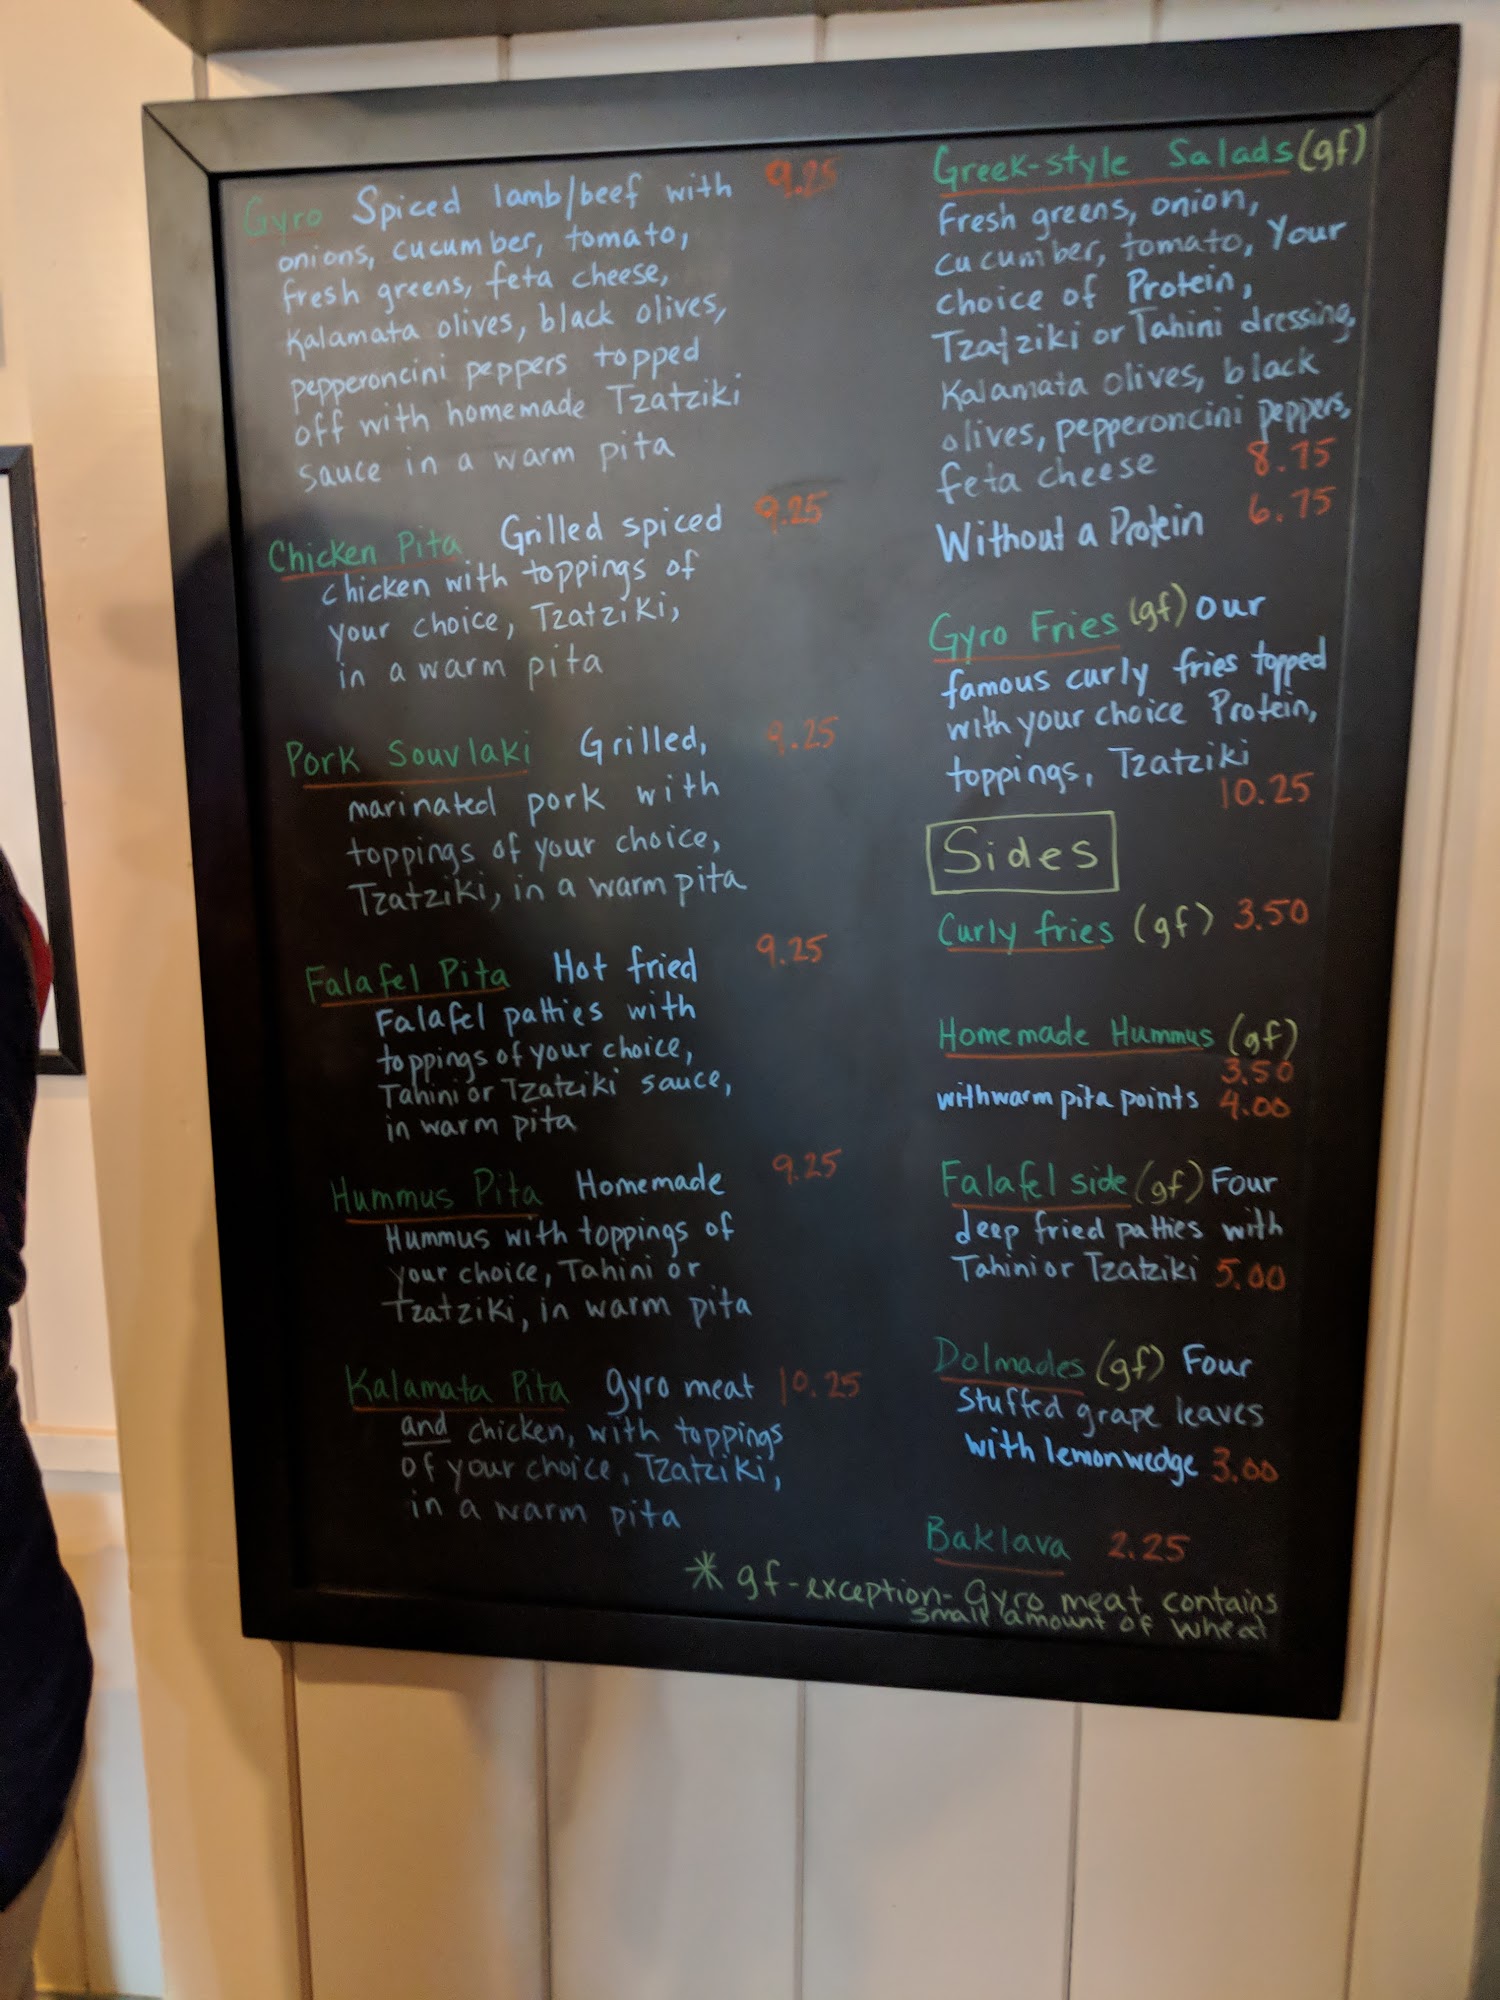 Gyro Spiced lamb/beef with 9.25
onions, cucumber, tomato,
fresh greens, feta cheese,
Kalamata olives, black olives,
pepperoncini peppers topped
off with homemade Tzatziki
sauce in a warm pita
Chicken Pita Grilled spiced 9.25
chicken with toppings of
your choice, Tzatziki,
in a warm pita
Pork Souvlaki Grilled, 9.25
marinated pork with
toppings of your choice,
Tzatziki, in a warm pita
Falafel Pita Hot fried 9.25
Falafel patties with
toppings of your choice,
Tahini or Tzatziki sauce,
in warm pita
Hummus Pita Homemade 9.25
Hummus with toppings of
your choice, Tahini or
Tzatziki, in warm pita
Kalamata Pita gyro meat 10.25
and chicken, with toppings
of your choice, Tzatziki,
in a warm pita
Greek-style Salads (gf)
Fresh greens, onion,
cucumber, tomato, Your
choice of Protein,
Tzatziki or Tahini dressing,
Kalamata olives, black
olives, pepperoncini peppers,
feta cheese 8.75
Without a Protein 6.75
Gyro Fries (gf) Our
famous curly fries topped
with your choice Protein,
toppings, Tzatziki
10.25
Sides
Curly fries (gf) 3.50
Homemade Hummus (gf)
3.50
with warm pita points 4.00
Falafel side (gf) Four
deep fried patties with
Tahini or Tzatziki 5.00
Dolmades (gf) Four
stuffed grape leaves
with lemon wedge 3.00
Baklava 2.25
* gf-exception- Gyro meat contains
small amount of wheat